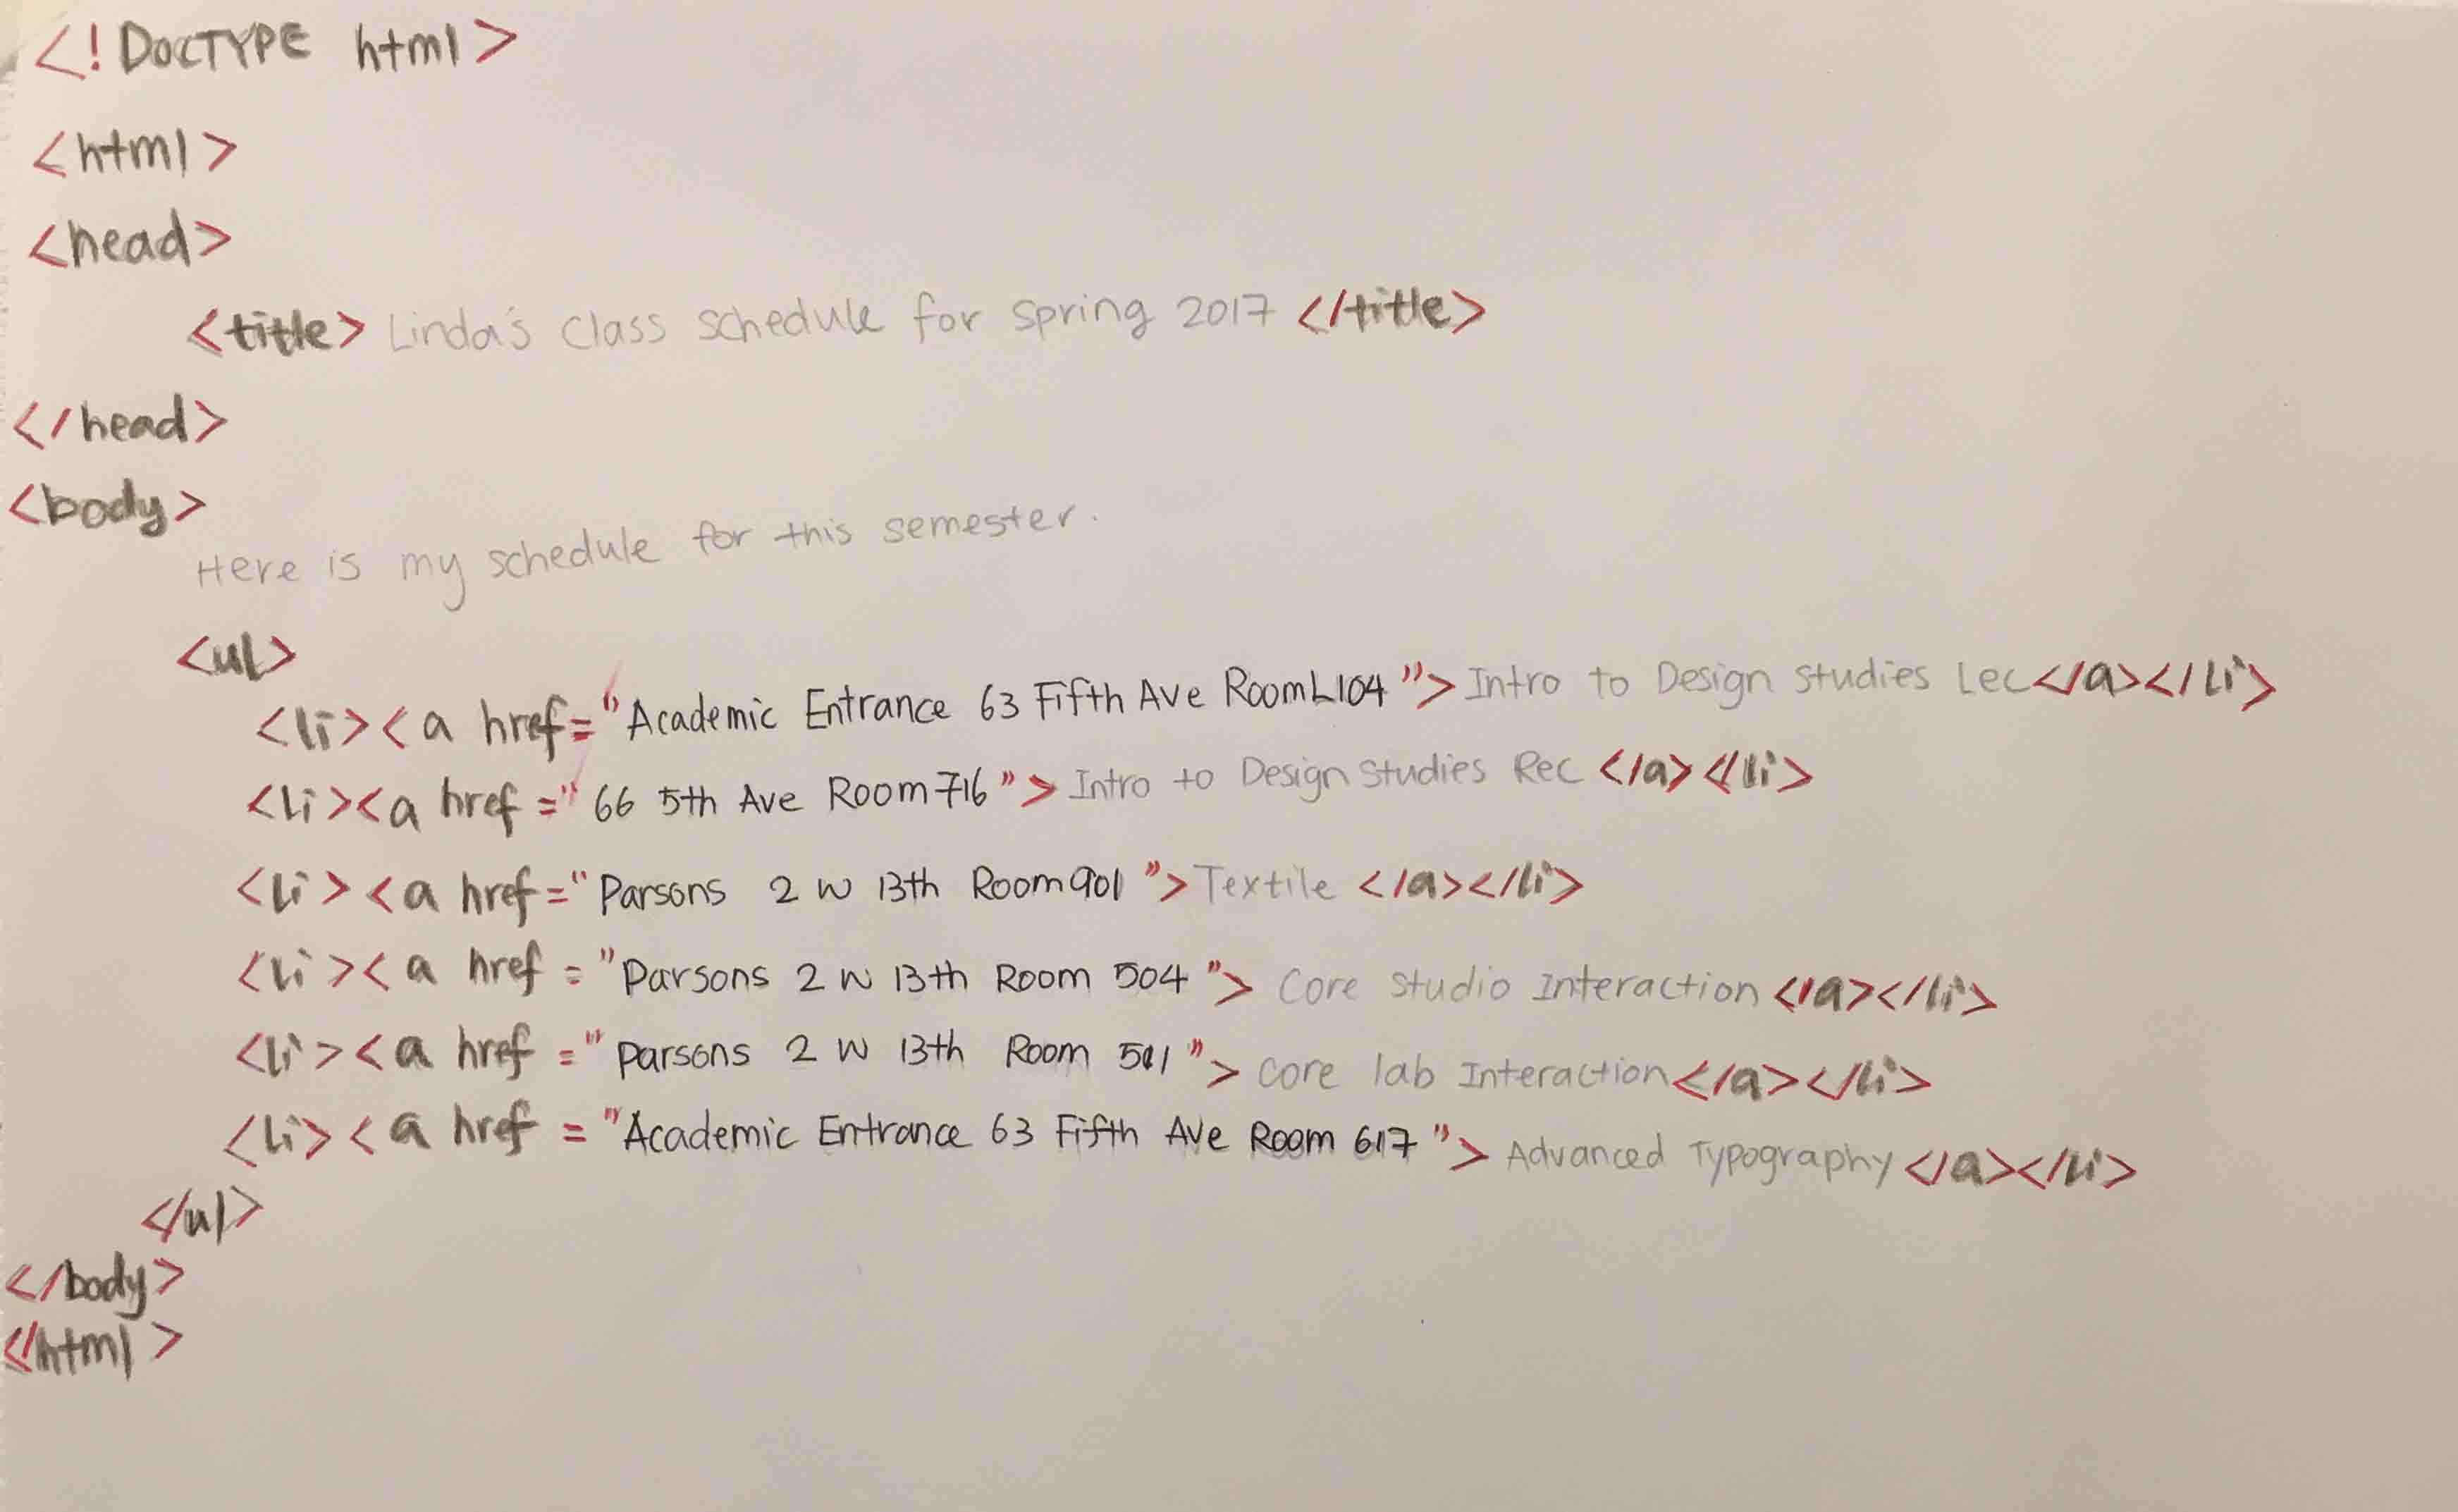 <!DOCTYPE html>
<html>
<head>
<title> Linda's Class schedule for spring 2017 </title>
</head>
<body>
Here is my schedule for this semester.
<ul>
<li><a href="Academic Entrance 63 Fifth Ave Room L104"> Intro to Design Studies Lec</a></li>
<li><a href="66 5th Ave Room 716"> Intro to Design Studies Rec </a></li>
<li><a href="Parsons 2 W 13th Room 901"> Textile </a></li>
<li><a href="Parsons 2 W 13th Room 504"> Core Studio Interaction</a></li>
<li><a href="parsons 2 W 13th Room"> core lab Interaction</a></li>
<li><a href="Academic Entrance 63 Fifth Ave Room 617"> Advanced Typography</a></li>
</ul>
</body>
</html>